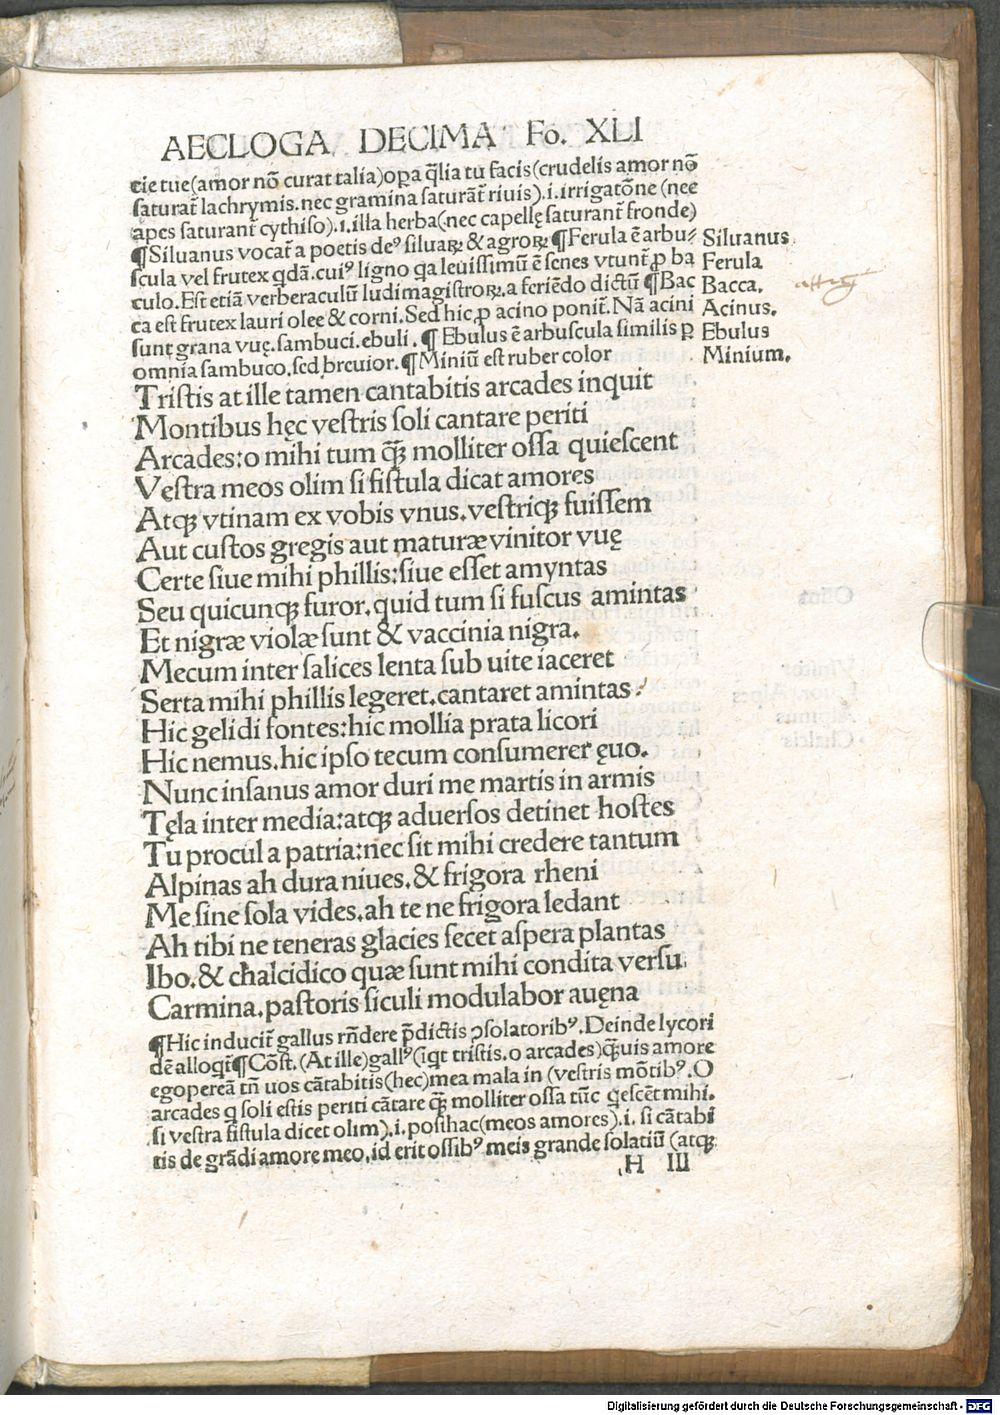 AECLOGA DECIMA Fo. XLI
tie tue(amor nō curat talia)oꝑa q̄lia tu facis(crudelis amor nō
saturat̄ lachrymis. nec gramina saturāt̄ riuis).i.irrigatōne (nec
apes saturant̄ cythiso).i.illa herba(nec capellę saturant̄ fronde)
¶Siluanus vocat̄ a poetis deꝰ siluaꝝ & agroꝝ ¶Ferula ē arbu⸗ Siluanus
scula vel frutex qdā. cuiꝰ ligno qa leuissimū ē senes vtunt̄ ꝓ ba Ferula
culo. Est etiā verberaculū ludimagistroꝝ. a feriēdo dictū ¶Bac Bacca.
ca est frutex lauri olee & corni. Sed hic ꝓ acino ponit̄. Nā acini Acinus.
sunt grana vuę. sambuci. ebuli. ¶ Ebulus ē arbuscula similis ꝑ Ebulus
omnia sambuco. sed breuior. ¶Miniū est ruber color Minium.
Tristis at ille tamen cantabitis arcades inquit
Montibus hęc vestris soli cantare periti
Arcades: o mihi tum q̄ꝫ molliter ossa quiescent
Vestra meos olim si fistula dicat amores
Atqꝫ vtinam ex vobis vnus. vestriqꝫ fuissem
Aut custos gregis aut maturæ vinitor vuę
Certe siue mihi phillis: siue esset amyntas
Seu quicunqꝫ furor. quid tum si fuscus amintas
Et nigræ violæ sunt & vaccinia nigra.
Mecum inter salices lenta sub uite iaceret
Serta mihi phillis legeret. cantaret amintas
Hic gelidi fontes: hic mollia prata licori
Hic nemus. hic ipso tecum consumerer ęuo.
Nunc insanus amor duri me martis in armis
Tęla inter media: atqꝫ aduersos detinet hostes
Tu procul a patria: nec sit mihi credere tantum
Alpinas ah dura niues. & frigora rheni
Me sine sola vides. ah te ne frigora ledant
Ah tibi ne teneras glacies secet aspera plantas
Ibo. & chalcidico quæ sunt mihi condita versu
Carmina. pastoris siculi modulabor auęna
¶Hic inducit̄ gallus rn̄dere p̄dictis ↄsolatoribꝰ. Deinde lycori
dē alloqt̄ ¶Cōst. (At ille)gallꝰ(iqt tristis. o arcades)q̄ꝫuis amore
ego pereā tn̄ uos cātabitis(hec)mea mala in (vestris mōtibꝰ. O
arcades q soli estis periti cātare q̄ꝫ molliter ossa tūc qescēt mihi.
si vestra fistula dicet olim).i. posthac(meos amores).i. si cātabi
tis de grādi amore meo. id erit ossibꝰ meis grande solatiū (atqꝫ
H III
Digitalisierung gefördert durch die Deutsche Forschungsgemeinschaft - DFG